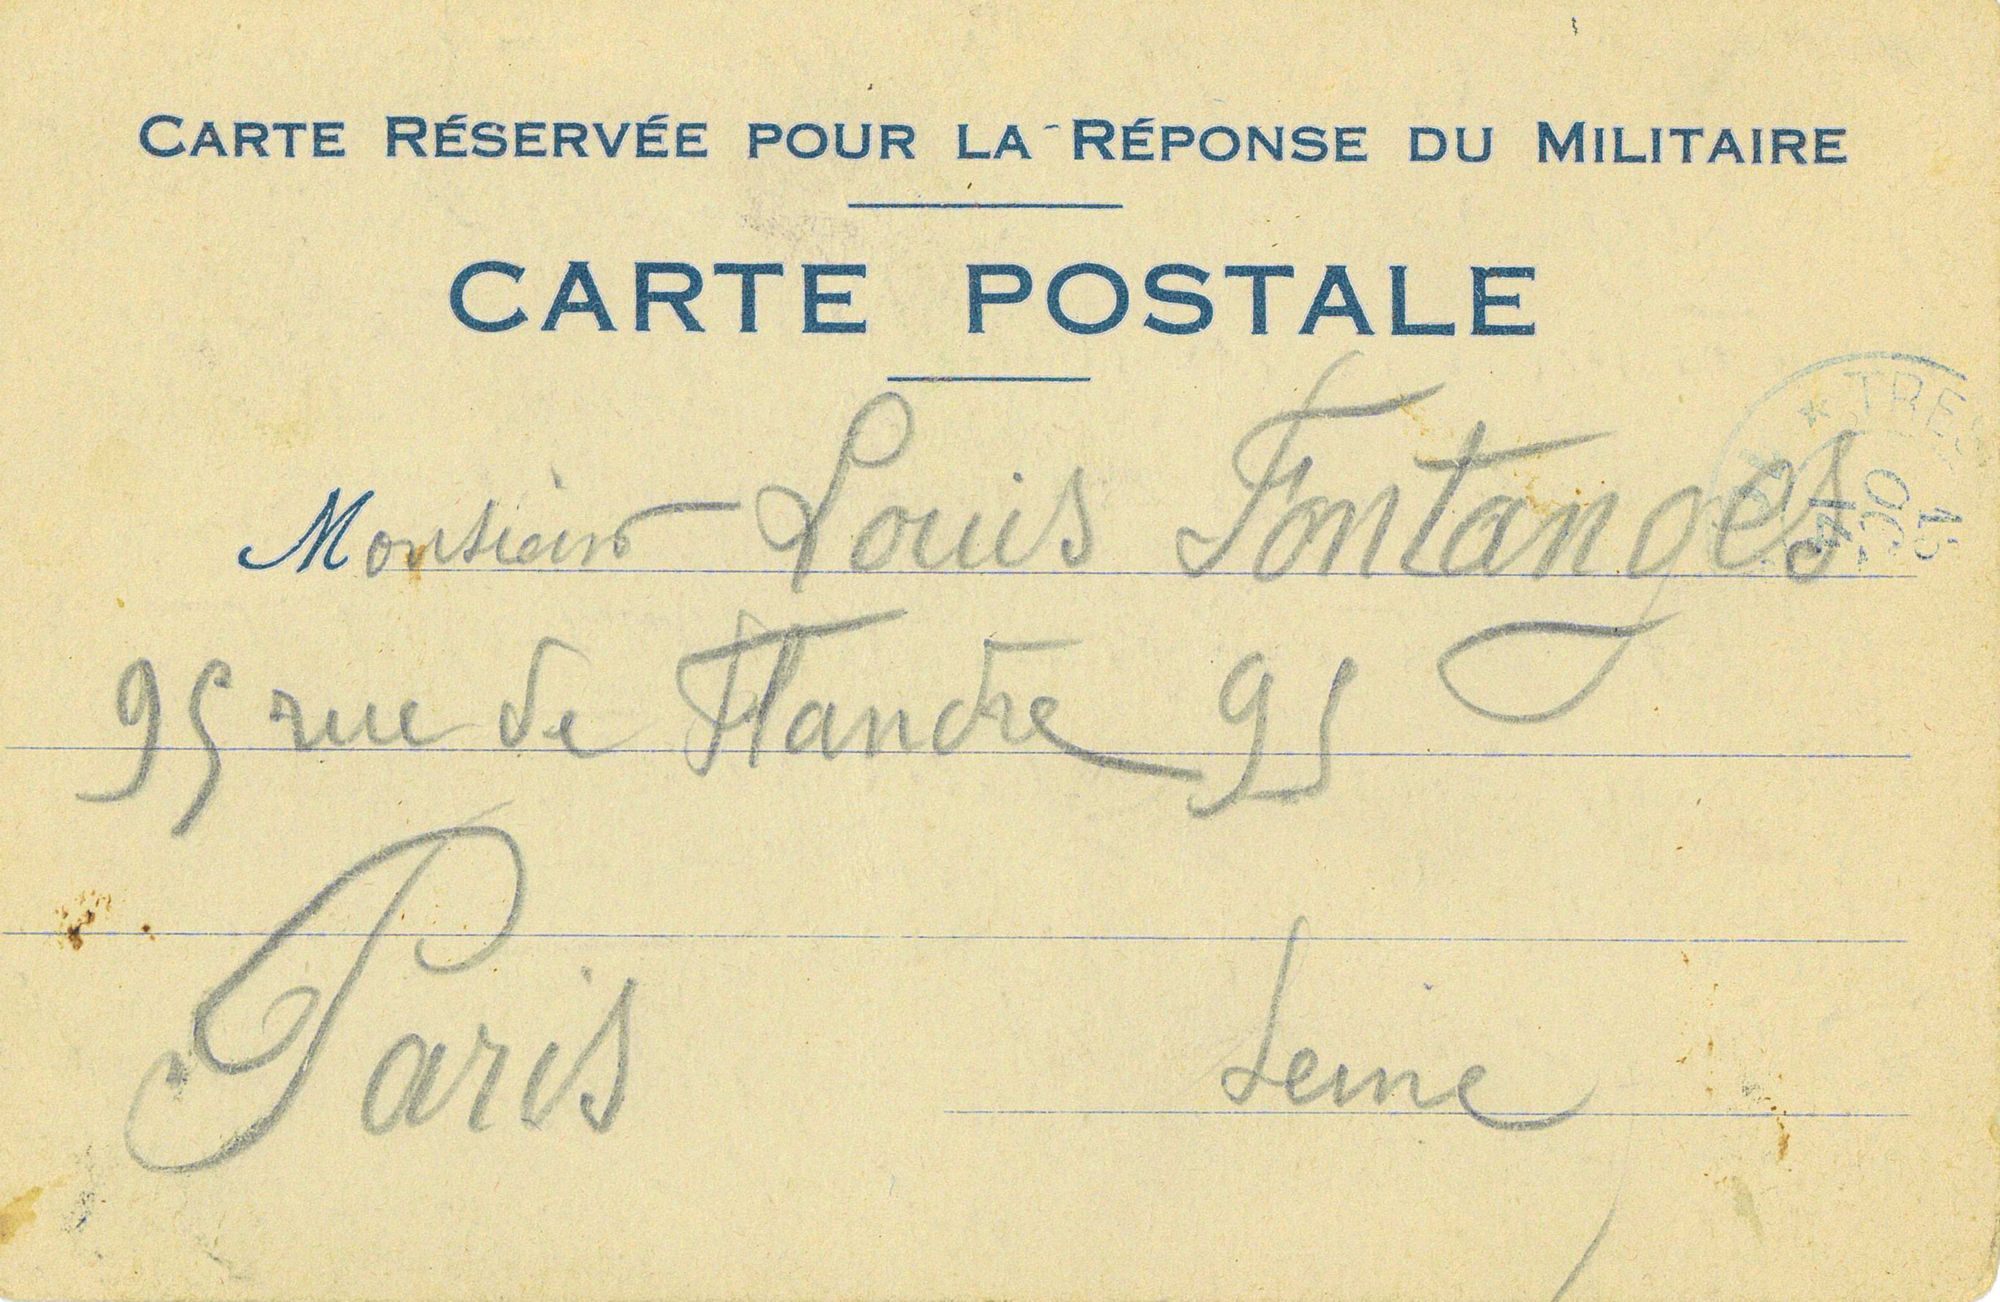 CARTE RÉSERVÉE POUR LA RÉPONSE DU MILITAIRE
CARTE POSTALE
Monsieur Louis Fontanges
95 rue de Flandre 95
Paris
Seine